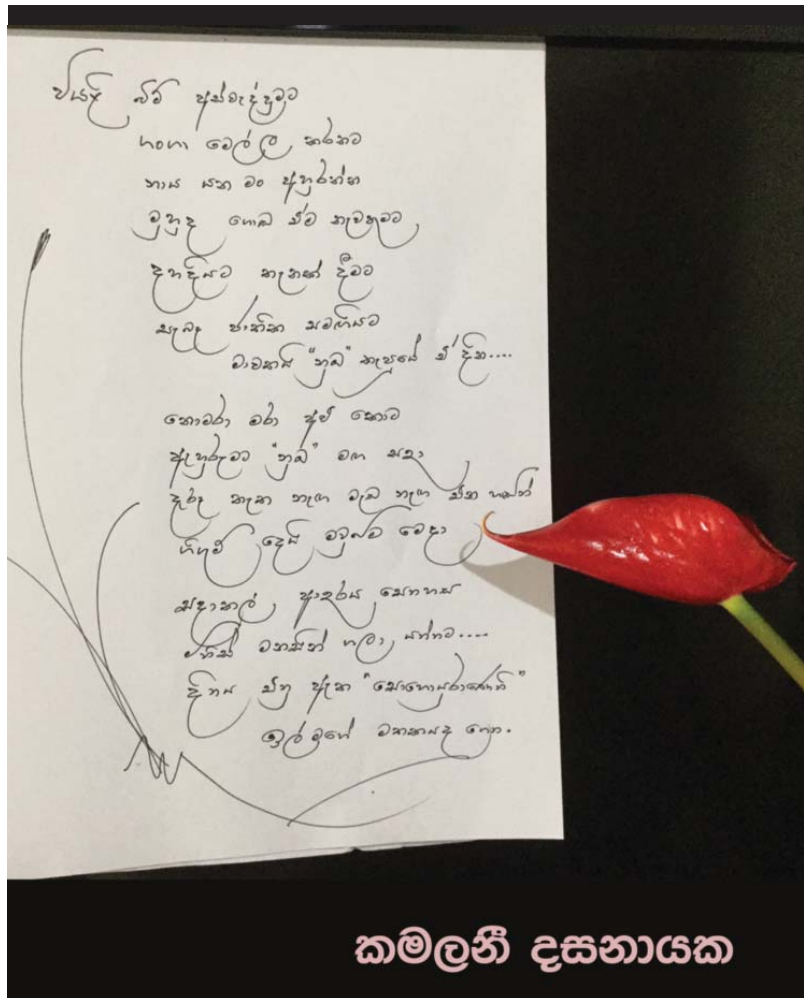 වියළි බිම් අස්වැද්දුමට
ගංගා මෙල්ල කරනට
නාය යන මං අහුරන්න
මුහුද ගොඩ ඒම නැවතුමට
දහදියට තැනක් දීමට
සැබෑ ජාතික සමගියට
මාවතයි "නුඹ" තැපුයේ ඒ දින....
නොමරා මරා අප කොට
ඇහුරුමට "නුඹ" මඟ සදා
දරු කැක නැඟ මැඩ නැඟ එන හඬින්
ගිගුම් දෙයි මවුබිම මෙදා
සදාකල් ආදරය සෙනහස
මිනිස් මනසින් ගලා යන්නට....
දිනය එනු ඇත "සොහොයුරාණෙනි"
ඉල් මහේ මතකයද ගෙන.
කමලනී දසනායක